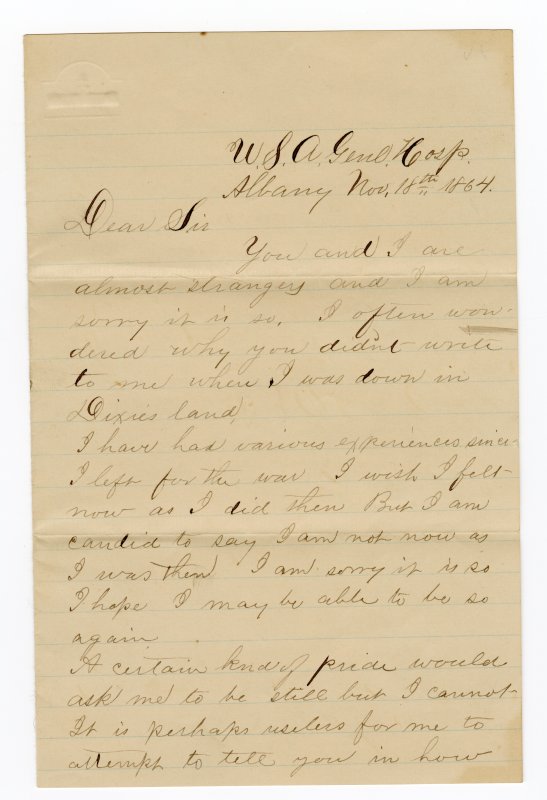 U.S.A. Genl. Hosp.
Albany Nov. 18th 1864.
Dear Sir
You and I are
almost strangers and I am
sorry it is so. I often won-
dered why you didn't write
to me when I was down in
Dixies land,
I have had various experiences since
I left for the war I wish I felt
now as I did then But I am
candid to say I am not now as
I was then I am sorry it is so
I hope I may be able to be so
again
A certain knd of pride would
ask me to be still but I cannot
It is perhaps useless for me to
attempt to tell you in how